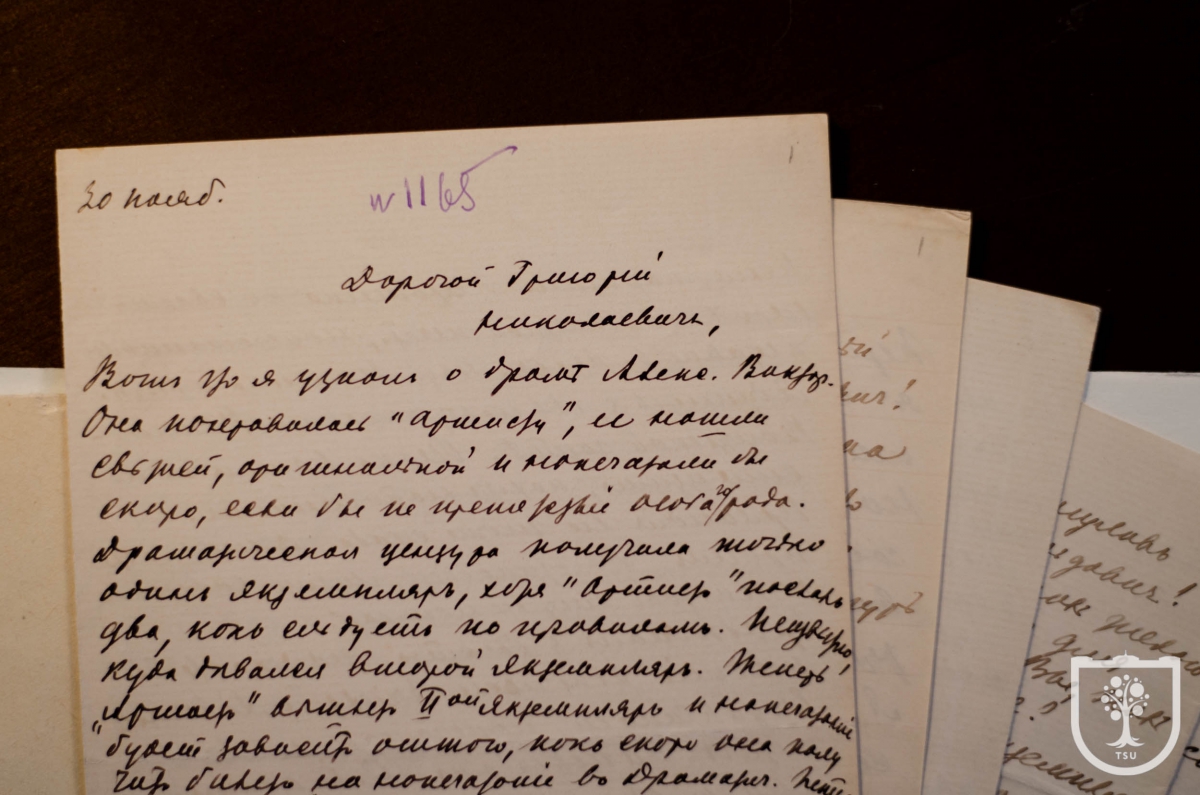 20 нояб.
№ 1165
1
Дорогой Григорій
Николаевичъ,
Вотъ что я узналъ о драмѣ Алекс. Виктор.
Она понравилась "Артисту", ее нашли
свѣжей, оригинальной и напечатали бы
скоро, если бы не препятствіе особаго рода.
Драматическая цензура получила только
одинъ экземпляръ, хотя "Артистъ" послалъ
два, какъ слѣдуетъ по правиламъ. Неизвѣстно,
куда дѣвался второй экземпляръ. Теперь
"Артистъ" II ой экземпляръ и напечатаніе
будетъ зависѣть отъ того, какъ скоро она полу
читъ билетъ на напечатаніе въ Драматич.
1
ый
вичъ!
на
въ
TSU